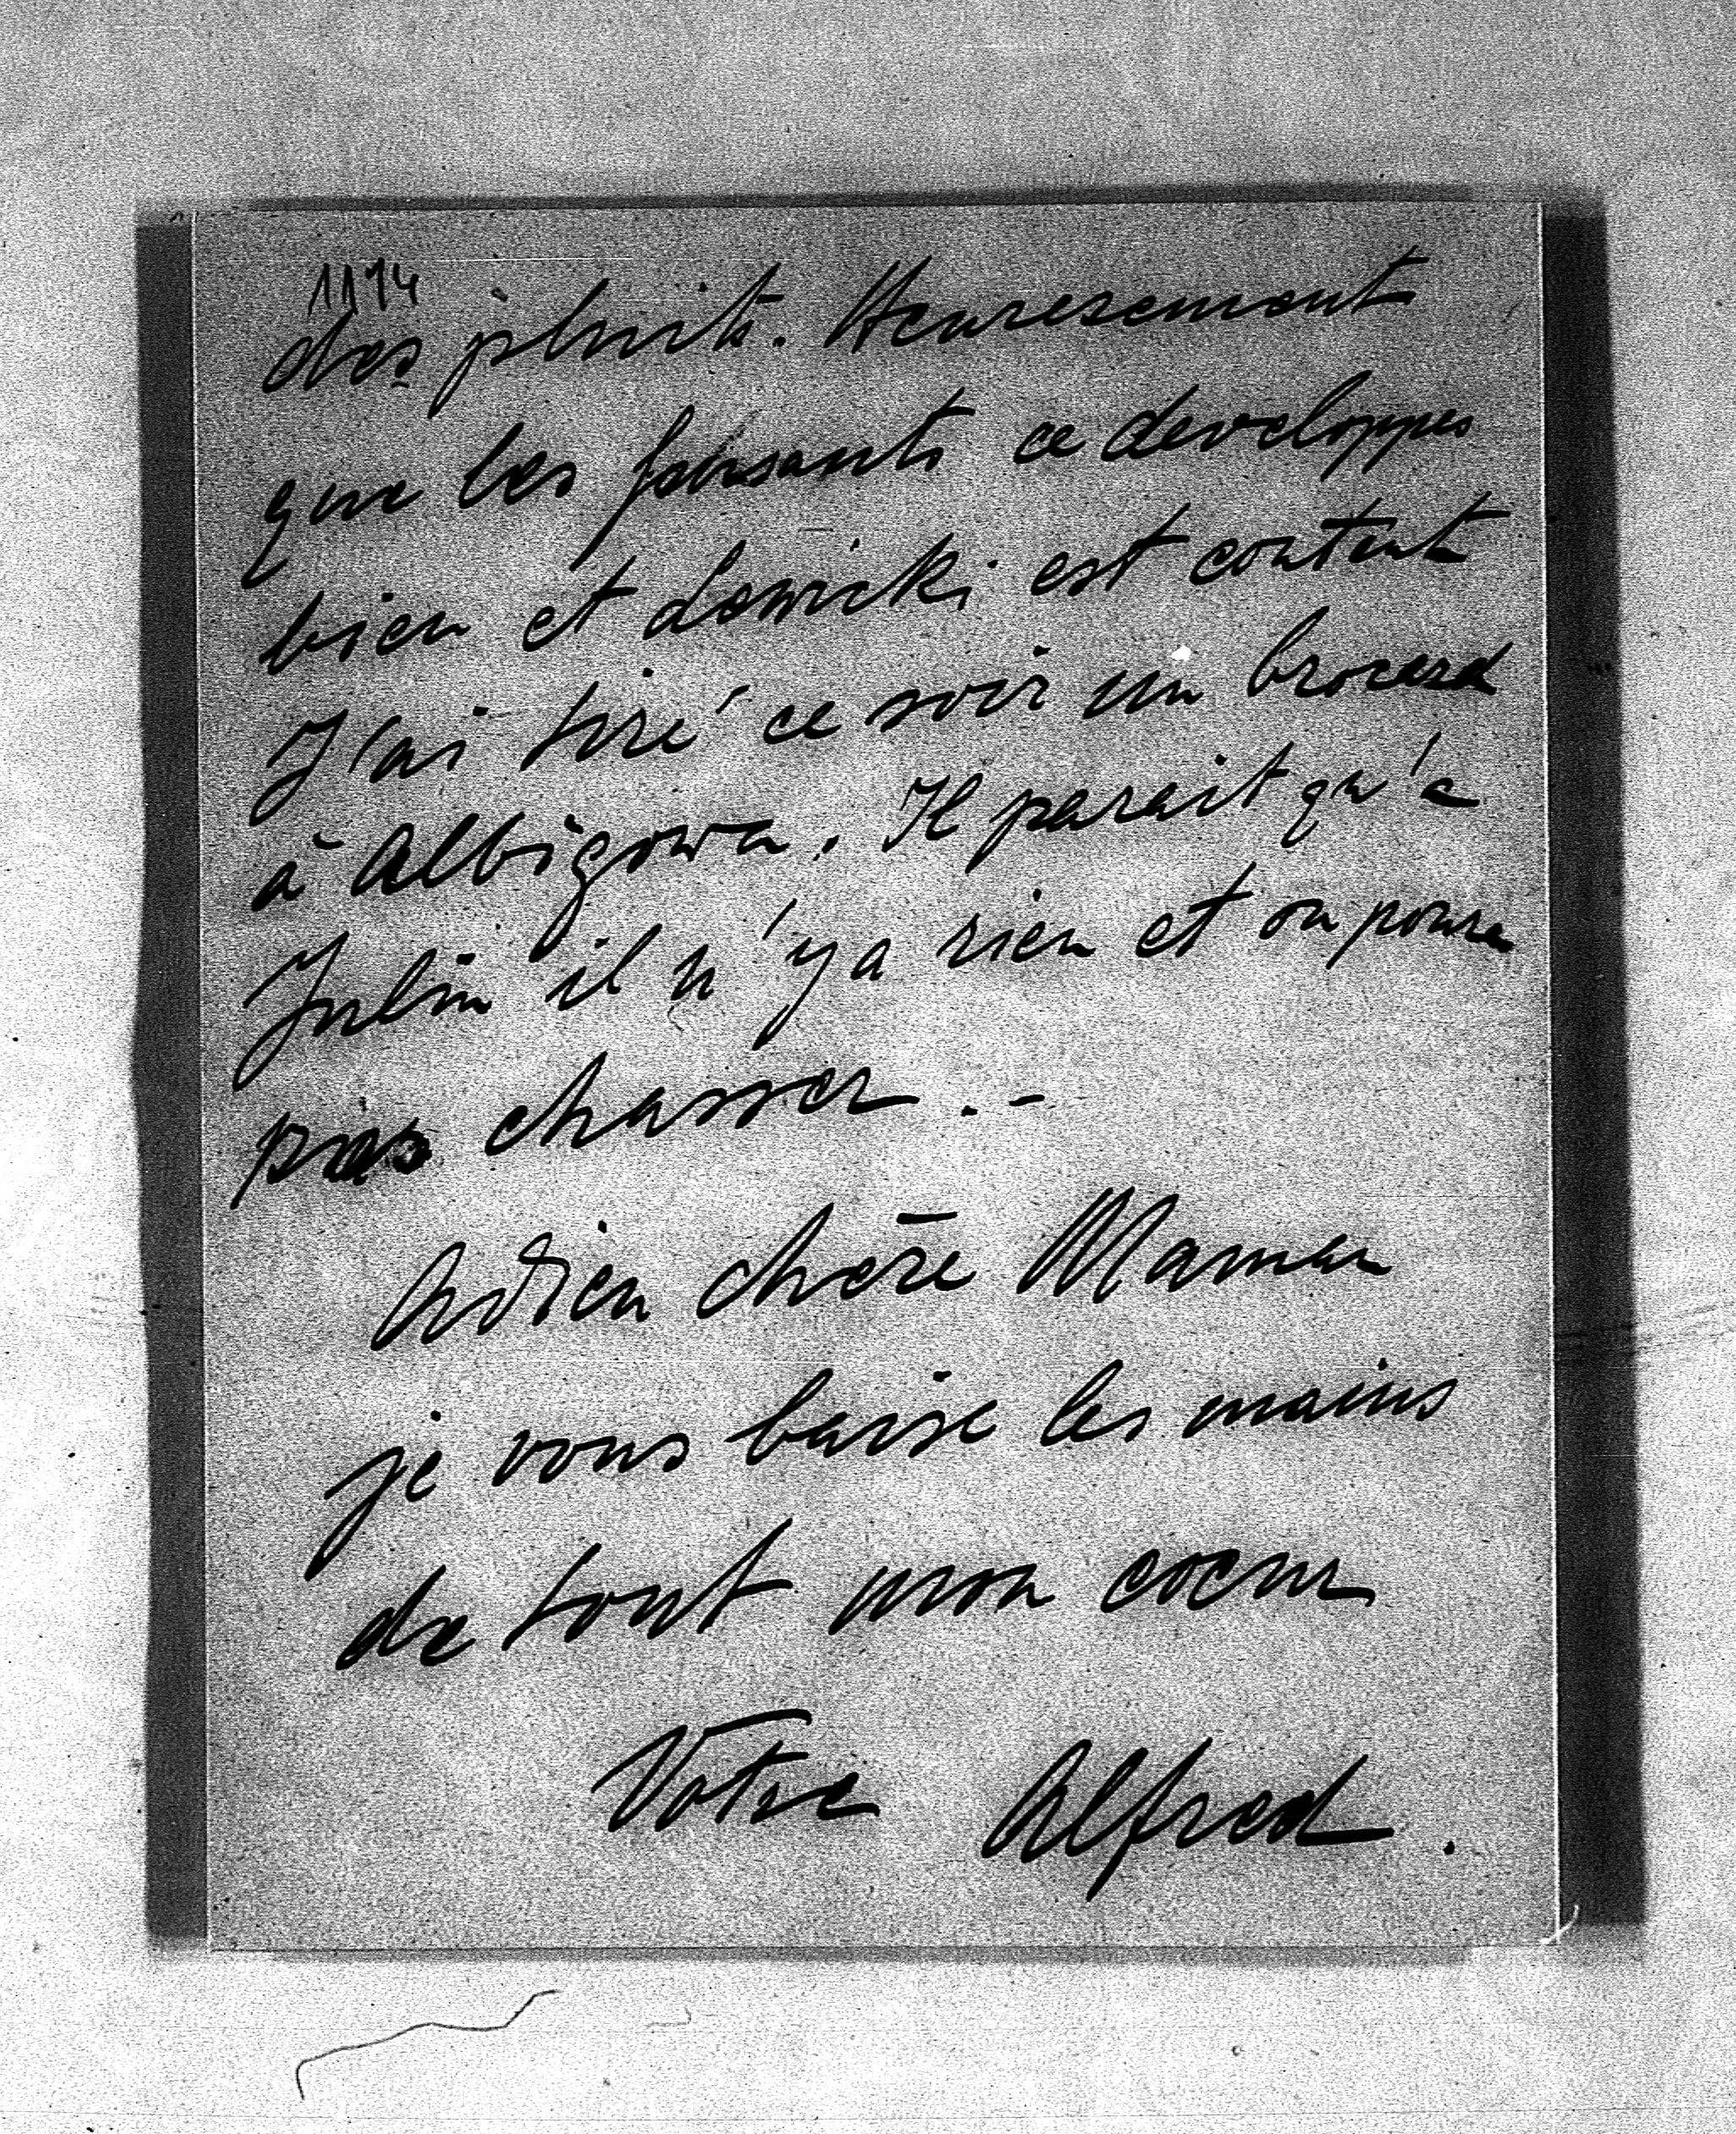 1174
des pluit. Heuresement
que les faisants ce developpes
bien et Lowicki est content
J'ai tiré ce soir un brocard
à Albigowa. Il parait qu'a
Julin il n'y a rien et on poura
pas chasser . -
Adieu chère Maman
je vous baise les mains
de tout mon coeur
Votre Alfred.